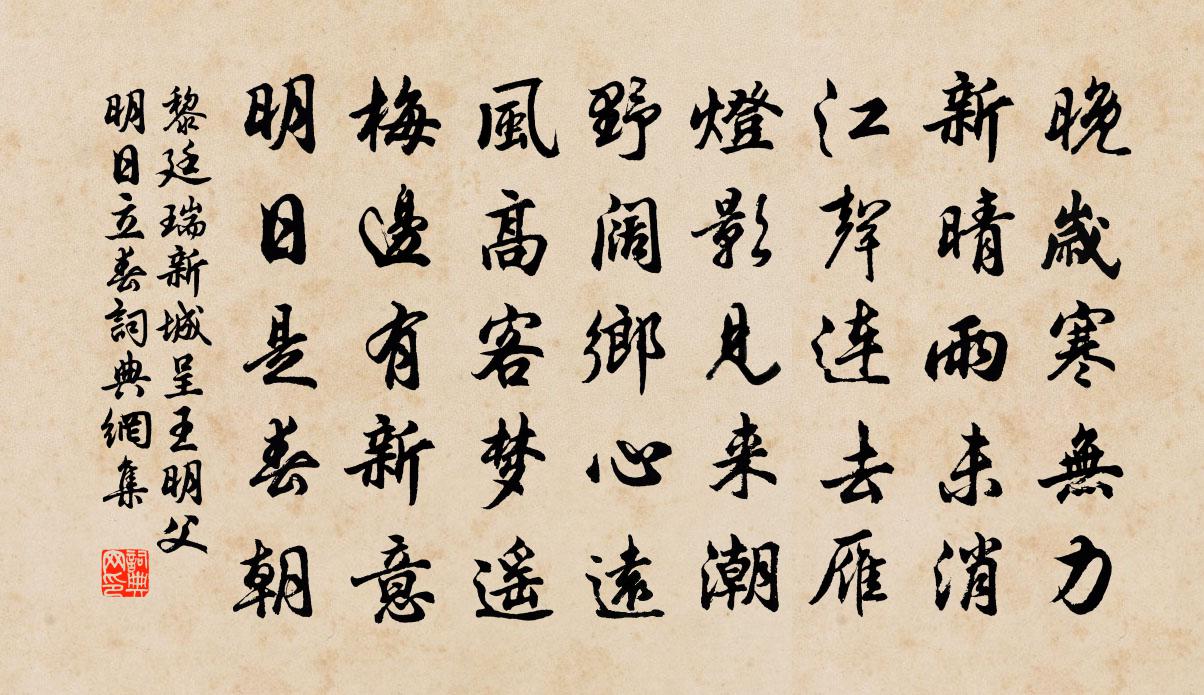 晚歲寒無力
新晴雨未消
江聲連去雁
燈影見来潮
野闊鄉心遠
風高客梦遥
梅邊有新意
明日是春朝
黎廷瑞新城呈王明父
明日立春詞典網集
詞典网印